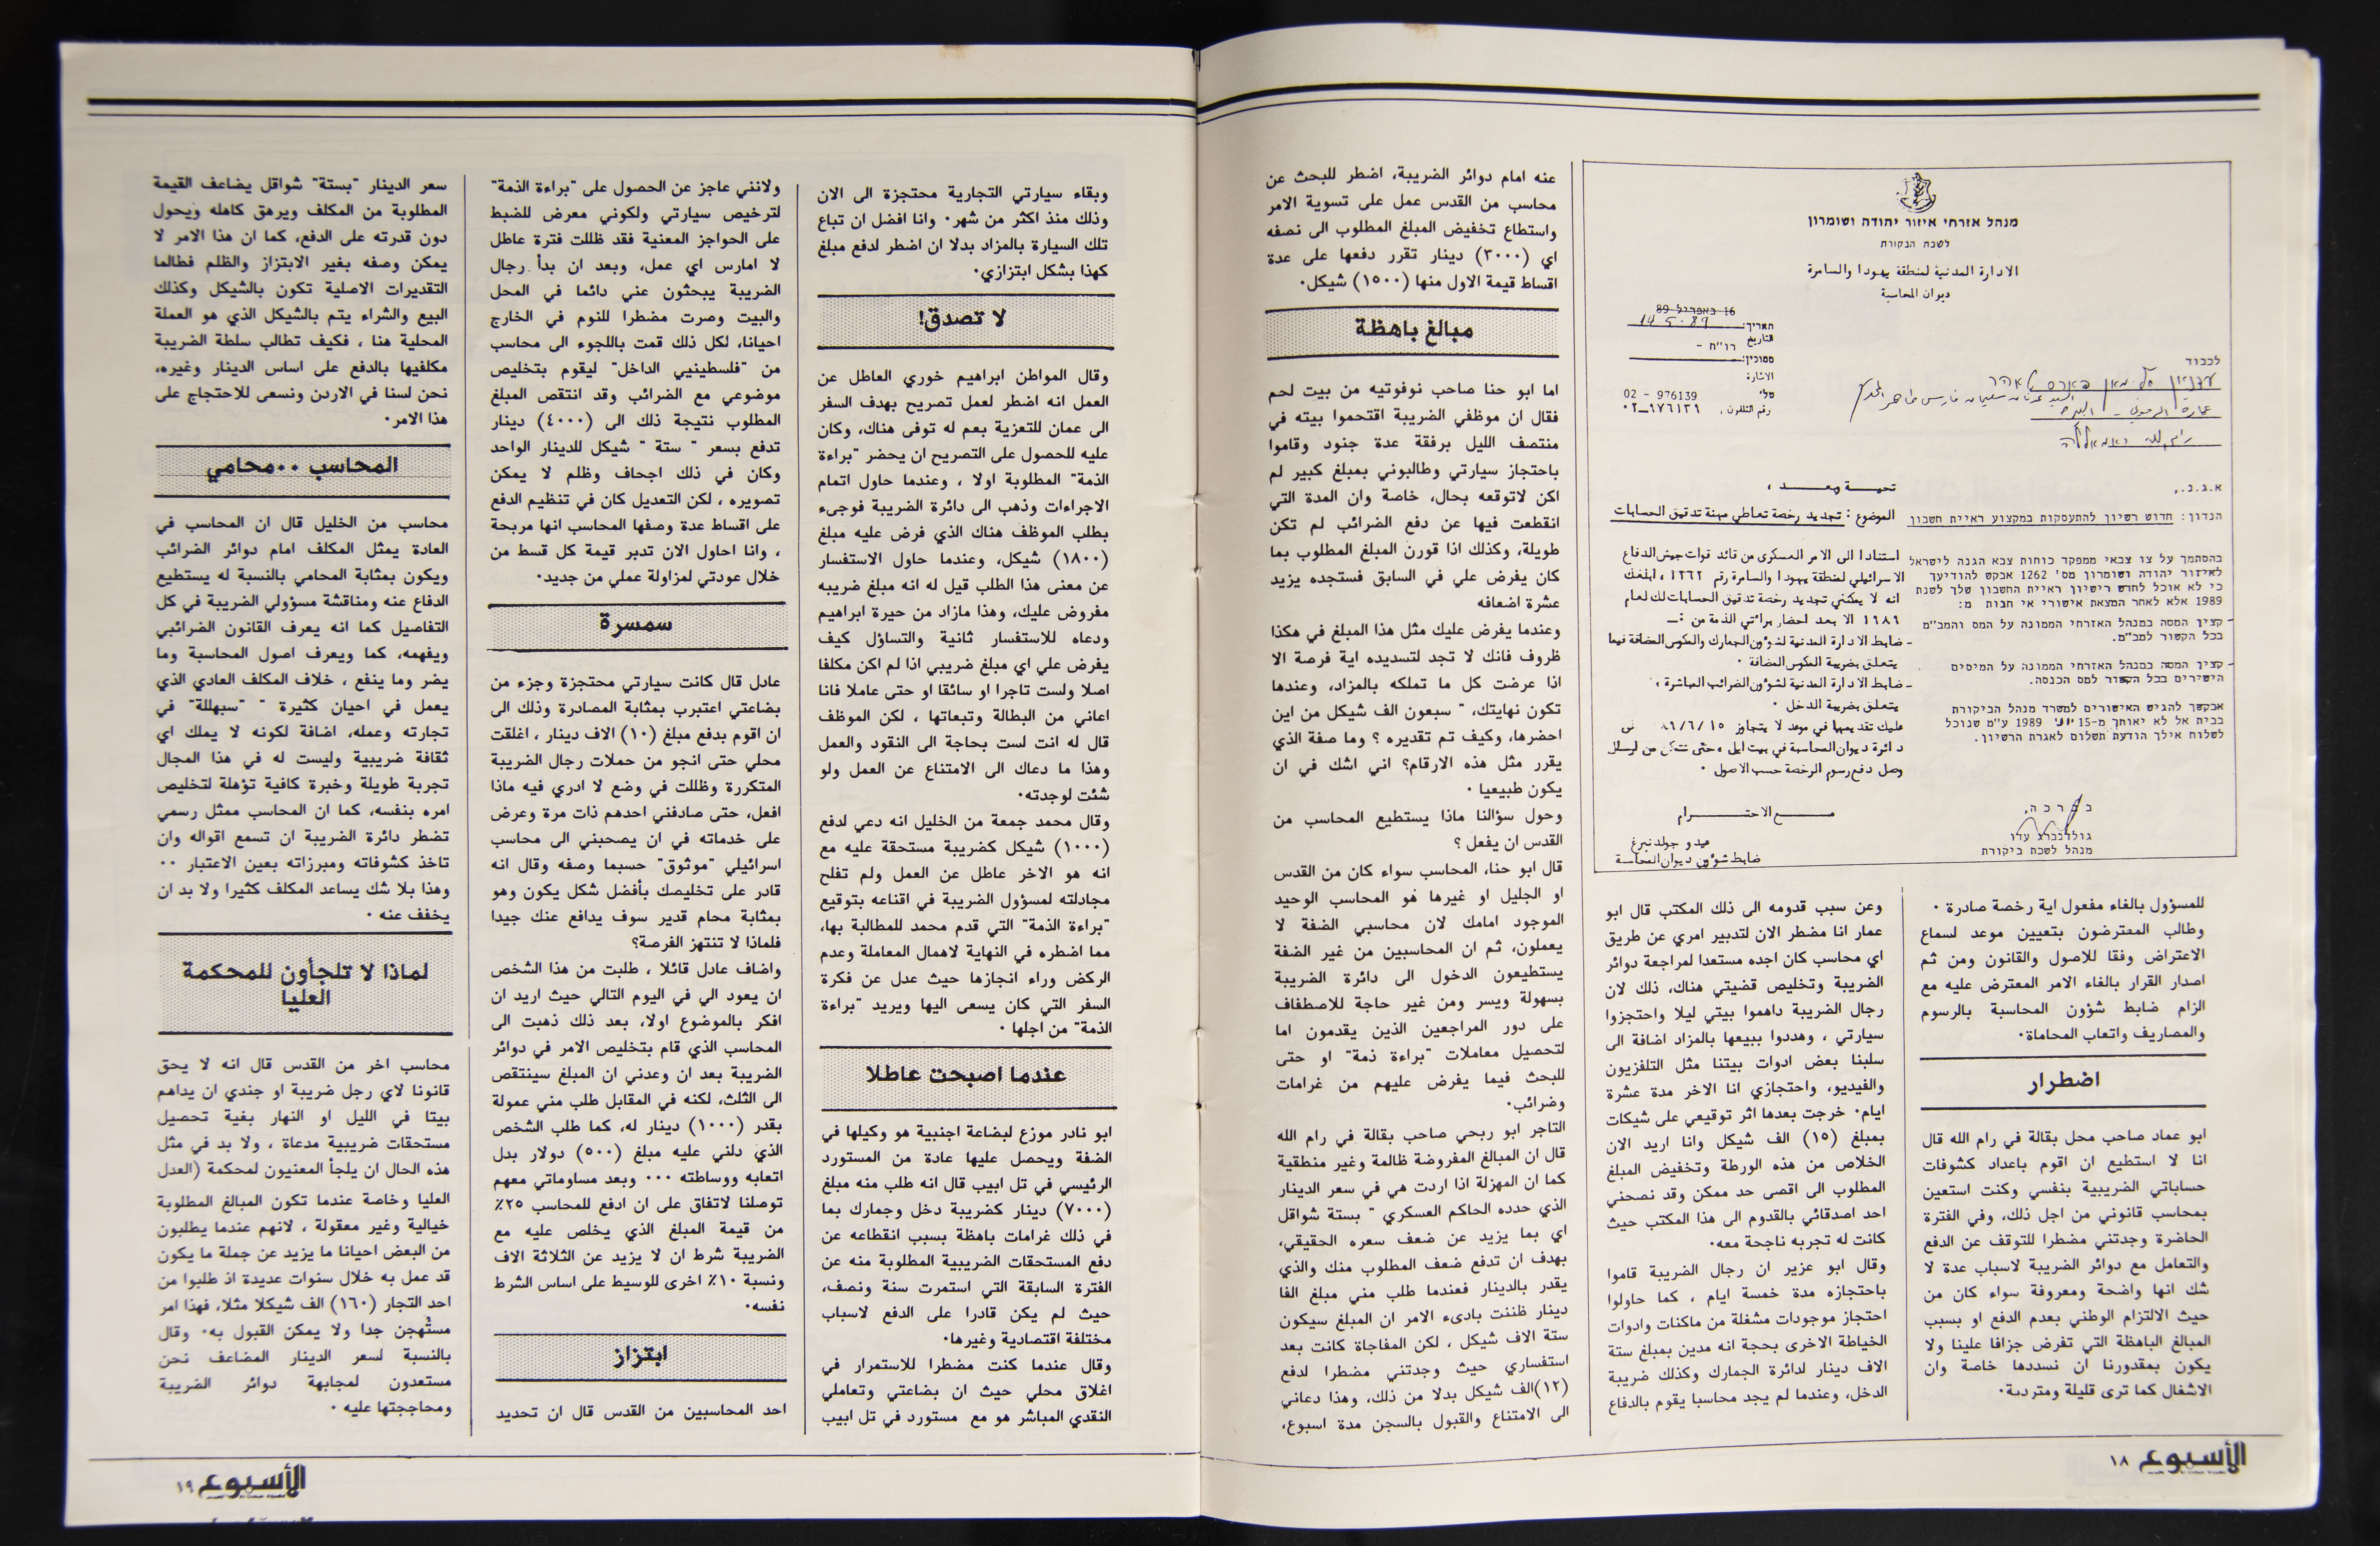 מנהל אזרחי איזור יהודה ושומרון
לשכת הבקורת
الادارة المدنية لمنطقة يهودا والسامرة
ديوان المحاسبة
16 באפריל 89
14.5.89
תאריך:
التاريخ
רו"ח -
סמוכין:
الاشارة
טל׳ 976139 - 02
رقم التلفون، ٩٧٦١٣٩_٠٢
לכבוד
السيد عدنان سليمان فارس طاهر
عمارة الرموني - البيرة
رام الله
א.ג.נ.,
הנדון: חדוש רשיון להתעסקות במקצוע ראיית חשבון
בהסתמך על צו צבאי ממפקד כוחות צבא הגנה לישראל
לאיזור יהודה ושומרון מס' 1262 אבקש להודיעך
כי לא אוכל לחדש רישיון ראיית החשבון שלך לשנת
1989 אלא לאחר המצאת אישורי אי חבות מ:
- קצין המסה במנהל האזרחי הממונה על המס והמב"מ
בכל הקשור למב"מ.
- קצין המטה במנהל האזרחי הממונה על המיסים
הישירים בכל הקשור למס הכנסה.
אבקשך להגיש האישורים למשרד מנהל הביקורת
בבית אל לא יאוחר מ-15 יוני 1989 ע"מ שנוכל
לשלוח אילך הודעת תשלום לאגרת הרשיון.
בברכה,
גולדנברג עדו
מנהל לשכת ביקורת
تحيـــة وبعـــد ،
الموضوع : تجديد رخصة تعاطي مهنة تدقيق الحسابات
استنادا الى الامر العسكري من قائد قوات جيش الدفاع
الاسرائيلي لمنطقة يهودا والسامرة رقم ١٢٦٢ ، ابلغك
انه لا يمكنني تجديد رخصة تدقيق الحسابات لك لعام
١٩٨٩ الا بعد احضار برائتي الذمة من :ـ
- ضابط الادارة المدنية لشؤون الجمارك والمكوس المضافة فيما
يتعلق بضريبة المكوس المضافة .
- ضابط الادارة المدنية لشؤون الضرائب المباشرة ،
يتعلق بضريبة الدخل .
عليك تقديمها في موعد لا يتجاوز ١٥ /٦/ ٨٩
دائرة ديوان المحاسبة في بيت ايل ، حتى نتمكن من ارسال
وصل دفع رسوم الرخصة حسب الاصول .
مـــع الاحتـــرام
عيدو جولدنبرغ
ضابط شؤون ديوان المحاسبة
للمسؤول بالغاء مفعول اية رخصة صادرة .
وطالب المعترضون بتعيين موعد لسماع
الاعتراض وفقا للاصول والقانون ومن ثم
اصدار القرار بالغاء الامر المعترض عليه مع
الزام ضابط شؤون المحاسبة بالرسوم
والمصاريف واتعاب المحاماة.
اضطرار
ابو عماد صاحب محل بقالة في رام الله قال
انا لا استطيع ان اقوم باعداد كشوفات
حساباتي الضريبية بنفسي وكنت استعين
بمحاسب قانوني من اجل ذلك، وفي الفترة
الحاضرة وجدتني مضطرا للتوقف عن الدفع
والتعامل مع دوائر الضريبة لاسباب عدة لا
شك انها واضحة ومعروفة سواء كان من
حيث الالتزام الوطني بعدم الدفع او بسبب
المبالغ الباهظة التي تفرض جزافا علينا ولا
يكون بمقدورنا ان نسددها خاصة وان
الاشغال كما ترى قليلة ومتردية.
وعن سبب قدومه الى ذلك المكتب قال ابو
عمار انا مضطر الان لتدبير امري عن طريق
اي محاسب كان اجده مستعدا لمراجعة دوائر
الضريبة وتخليص قضيتي هناك، ذلك لان
رجال الضريبة داهموا بيتي ليلا واحتجزوا
سيارتي ، وهددوا ببيعها بالمزاد اضافة الى
سلبنا بعض ادوات بيتنا مثل التلفزيون
والفيديو، واحتجازي انا الاخر مدة عشرة
ايام. خرجت بعدها اثر توقيعي على شيكات
بمبلغ (١٥) الف شيكل وانا اريد الان
الخلاص من هذه الورطة وتخفيض المبلغ
المطلوب الى اقصى حد ممكن وقد نصحني
احد اصدقائي بالقدوم الى هذا المكتب حيث
كانت له تجربه ناجحة معه.
وقال ابو عزير ان رجال الضريبة قاموا
باحتجازه مدة خمسة ايام ، كما حاولوا
احتجاز موجودات مشغلة من ماكنات وادوات
الخياطة الاخرى بحجة انه مدين بمبلغ ستة
الاف دينار لدائرة الجمارك وكذلك ضريبة
الدخل، وعندما لم يجد محاسبا يقوم بالدفاع
عنه امام دوائر الضريبة، اضطر للبحث عن
محاسب من القدس عمل على تسوية الامر
واستطاع تخفيض المبلغ المطلوب الى نصفه
اي (٣٠٠٠) دينار تقرر دفعها على عدة
اقساط قيمة الاول منها (١٥٠٠) شيكل.
مبالغ باهظة
اما ابو حنا صاحب نوفوتيه من بيت لحم
فقال ان موظفي الضريبة اقتحموا بيته في
منتصف الليل برفقة عدة جنود وقاموا
باحتجاز سيارتي وطالبوني بمبلغ كبير لم
اكن لاتوقعه بحال، خاصة وان المدة التي
انقطعت فيها عن دفع الضرائب لم تكن
طويلة، وكذلك اذا قورن المبلغ المطلوب بما
كان يفرض علي في السابق فستجده يزيد
عشرة اضعافه
وعندما يفرض عليك مثل هذا المبلغ في هكذا
ظروف فانك لا تجد لتسديده اية فرصة الا
اذا عرضت كل ما تملكه بالمزاد، وعندها
تكون نهايتك، " سبعون الف شيكل من اين
احضرها، وكيف تم تقديره ؟ وما صفة الذي
يقرر مثل هذه الارقام؟ اني اشك في ان
يكون طبيعيا .
وحول سؤالنا ماذا يستطيع المحاسب من
القدس ان يفعل ؟
قال ابو حنا، المحاسب سواء كان من القدس
او الجليل او غيرها هو المحاسب الوحيد
الموجود امامك لان محاسبي الضفة لا
يعملون، ثم ان المحاسبين من غير الضفة
يستطيعون الدخول الى دائرة الضريبة
بسهولة ويسر ومن غير حاجة للاصطفاف
على دور المراجعين الذين يقدمون اما
لتحصيل معاملات "براءة ذمة" او حتى
للبحث فيما يفرض عليهم من غرامات
وضرائب.
التاجر ابو ربحي صاحب بقالة في رام الله
قال ان المبالغ المفروضة ظالمة وغير منطقية
كما ان المهزلة اذا اردت هي في سعر الدينار
الذي حدده الحاكم العسكري " بستة شواقل
اي بما يزيد عن ضعف سعره الحقيقي،
بهدف ان تدفع ضعف المطلوب منك والذي
يقدر بالدينار فعندما طلب مني مبلغ الفا
دينار ظننت بادىء الامر ان المبلغ سيكون
ستة الاف شيكل ، لكن المفاجاة كانت بعد
استفساري حيث وجدتني مضطرا لدفع
(١٢)الف شيكل بدلا من ذلك، وهذا دعاني
الى الامتناع والقبول بالسجن مدة اسبوع،
الأسبوع ١٨
وبقاء سيارتي التجارية محتجزة الى الان
وذلك منذ اكثر من شهر. وانا افضل ان تباع
تلك السيارة بالمزاد بدلا ان اضطر لدفع مبلغ
كهذا بشكل ابتزازي.
لا تصدق!
وقال المواطن ابراهيم خوري العاطل عن
العمل انه اضطر لعمل تصريح بهدف السفر
الى عمان للتعزية بعم له توفى هناك، وكان
عليه للحصول على التصريح ان يحضر "براءة
الذمة" المطلوبة اولا ، وعندما حاول اتمام
الاجراءات وذهب الى دائرة الضريبة فوجىء
بطلب الموظف هناك الذي فرض عليه مبلغ
(١٨٠٠) شيكل، وعندما حاول الاستفسار
عن معنى هذا الطلب قيل له انه مبلغ ضريبه
مفروض عليك، وهذا مازاد من حيرة ابراهيم
ودعاه للاستفسار ثانية والتساؤل كيف
يفرض علي اي مبلغ ضريبي اذا لم اكن مكلفا
اصلا ولست تاجرا او سائقا او حتى عاملا فانا
اعاني من البطالة وتبعاتها ، لكن الموظف
قال له انت لست بحاجة الى النقود والعمل
وهذا ما دعاك الى الامتناع عن العمل ولو
شئت لوجدته.
وقال محمد جمعة من الخليل انه دعي لدفع
(١٠٠٠) شيكل كضريبة مستحقة عليه مع
انه هو الاخر عاطل عن العمل ولم تفلح
مجادلته لمسؤول الضريبة في اقناعه بتوقيع
"براءة الذمة" التي قدم محمد للمطالبة بها،
مما اضطره في النهاية لاهمال المعاملة وعدم
الركض وراء انجازها حيث عدل عن فكرة
السفر التي كان يسعى اليها ويريد "براءة
الذمة" من اجلها .
عندما اصبحت عاطلا
ابو نادر موزع لبضاعة اجنبية هو وكيلها في
الضفة ويحصل عليها عادة من المستورد
الرئيسي في تل ابيب قال انه طلب منه مبلغ
(٧٠٠٠) دينار كضريبة دخل وجمارك بما
في ذلك غرامات باهظة بسبب انقطاعه عن
دفع المستحقات الضريبية المطلوبة منه عن
الفترة السابقة التي استمرت سنة ونصف،
حيث لم يكن قادرا على الدفع لاسباب
مختلفة اقتصادية وغيرها.
وقال عندما كنت مضطرا للاستمرار في
اغلاق محلي حيث ان بضاعتي وتعاملي
النقدي المباشر هو مع مستورد في تل ابيب
ولانني عاجز عن الحصول على "براءة الذمة"
لترخيص سيارتي ولكوني معرض للضبط
على الحواجز المعنية فقد ظللت فترة عاطل
لا امارس اي عمل، وبعد ان بدأ رجال
الضريبة يبحثون عني دائما في المحل
والبيت وصرت مضطرا للنوم في الخارج
احيانا، لكل ذلك قمت باللجوء الى محاسب
من "فلسطينيي الداخل" ليقوم بتخليص
موضوعي مع الضرائب وقد انتقص المبلغ
المطلوب نتيجة ذلك الى (٤٠٠٠) دينار
تدفع بسعر " ستة " شيكل للدينار الواحد
وكان في ذلك اجحاف وظلم لا يمكن
تصويره ، لكن التعديل كان في تنظيم الدفع
على اقساط عدة وصفها المحاسب انها مريحة
، وانا احاول الان تدبر قيمة كل قسط من
خلال عودتي لمزاولة عملي من جديد.
سمسرة
عادل قال كانت سيارتي محتجزة وجزء من
بضاعتي اعتبرب بمثابة المصادرة وذلك الى
ان اقوم بدفع مبلغ (١٠) الاف دينار ، اغلقت
محلي حتى انجو من حملات رجال الضريبة
المتكررة وظللت في وضع لا ادري فيه ماذا
افعل، حتى صادفني احدهم ذات مرة وعرض
على خدماته في ان يصحبني الى محاسب
اسرائيلي "موثوق" حسبما وصفه وقال انه
قادر على تخليصك بأفضل شكل يكون وهو
بمثابة محام قدير سوف يدافع عنك جيدا
فلماذا لا تنتهز الفرصة؟
واضاف عادل قائلا ، طلبت من هذا الشخص
ان يعود الي في اليوم التالي حيث اريد ان
افكر بالموضوع اولا، بعد ذلك ذهبت الى
المحاسب الذي قام بتخليص الامر في دوائر
الضريبة بعد ان وعدني ان المبلغ سينتقص
الى الثلث، لكنه في المقابل طلب مني عمولة
بقدر (١٠٠٠) دينار له، كما طلب الشخص
الذي دلني عليه مبلغ (٥٠٠) دولار بدل
اتعابه ووساطته ... وبعد مساوماتي معهم
توصلنا لاتفاق على ان ادفع للمحاسب ٢٥٪
من قيمة المبلغ الذي يخلص عليه مع
الضريبة شرط ان لا يزيد عن الثلاثة الاف
ونسبة ١٠٪ اخرى للوسيط على اساس الشرط
نفسه.
ابتزاز
احد المحاسبين من القدس قال ان تحديد
سعر الدينار "بستة" شواقل يضاعف القيمة
المطلوبة من المكلف ويرهق كاهله ويحول
دون قدرته على الدفع، كما ان هذا الامر لا
يمكن وصفه بغير الابتزاز والظلم فطالما
التقديرات الاصلية تكون بالشيكل وكذلك
البيع والشراء يتم بالشيكل الذي هو العملة
المحلية هنا ، فكيف تطالب سلطة الضريبة
مكلفيها بالدفع على اساس الدينار وغيره،
نحن لسنا في الاردن ونسعى للاحتجاج على
هذا الامر.
المحاسب ..محامي
محاسب من الخليل قال ان المحاسب في
العادة يمثل المكلف امام دوائر الضرائب
ويكون بمثابة المحامي بالنسبة له يستطيع
الدفاع عنه ومناقشة مسؤولي الضريبة في كل
التفاصيل كما انه يعرف القانون الضرائبي
ويفهمه، كما ويعرف اصول المحاسبة وما
يضر وما ينفع ، خلاف المكلف العادي الذي
يعمل في احيان كثيرة " "سبهللة" في
تجارته وعمله، اضافة لكونه لا يملك اي
ثقافة ضريبية وليست له في هذا المجال
تجربة طويلة وخبرة كافية تؤهلة لتخليص
امره بنفسه، كما ان المحاسب ممثل رسمي
تضطر دائرة الضريبة ان تسمع اقواله وان
تاخذ كشوفاته ومبرزاته بعين الاعتبار ..
وهذا بلا شك يساعد المكلف كثيرا ولا بد ان
يخفف عنه .
لماذا لا تلجأون للمحكمة
العليا
محاسب اخر من القدس قال انه لا يحق
قانونا لاي رجل ضريبة او جندي ان يداهم
بيتا في الليل او النهار بغية تحصيل
مستحقات ضريبية مدعاة ، ولا بد في مثل
هذه الحال ان يلجأ المعنيون لمحكمة (العدل
العليا وخاصة عندما تكون المبالغ المطلوبة
خيالية وغير معقولة ، لانهم عندما يطلبون
من البعض احيانا ما يزيد عن جملة ما يكون
قد عمل به خلال سنوات عديدة اذ طلبوا من
احد التجار (١٦٠) الف شيكلا مثلا، فهذا امر
مستُهجن جدا ولا يمكن القبول به. وقال
بالنسبة لسعر الدينار المضاعف نحن
مستعدون لمجابهة دوائر الضريبة
ومحاججتها عليه .
الأسبوع ١٩